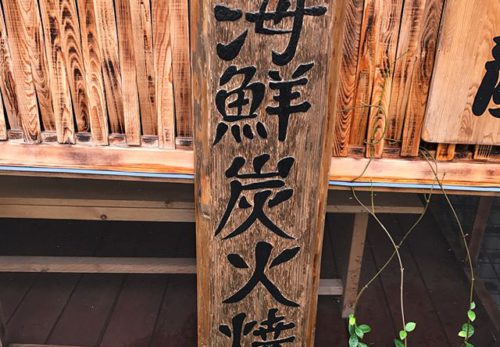 海鮮炭火焼